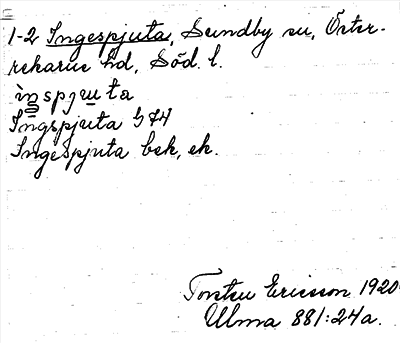 1-2 Ingespjuta, Sundby sn, Öster-
rekarne hd, Söd. l.
ingspjuta
Ingspjuta G 74
Ingespjuta bek, ek.
Torsten Ericsson 1920
Ulma 881:24a.